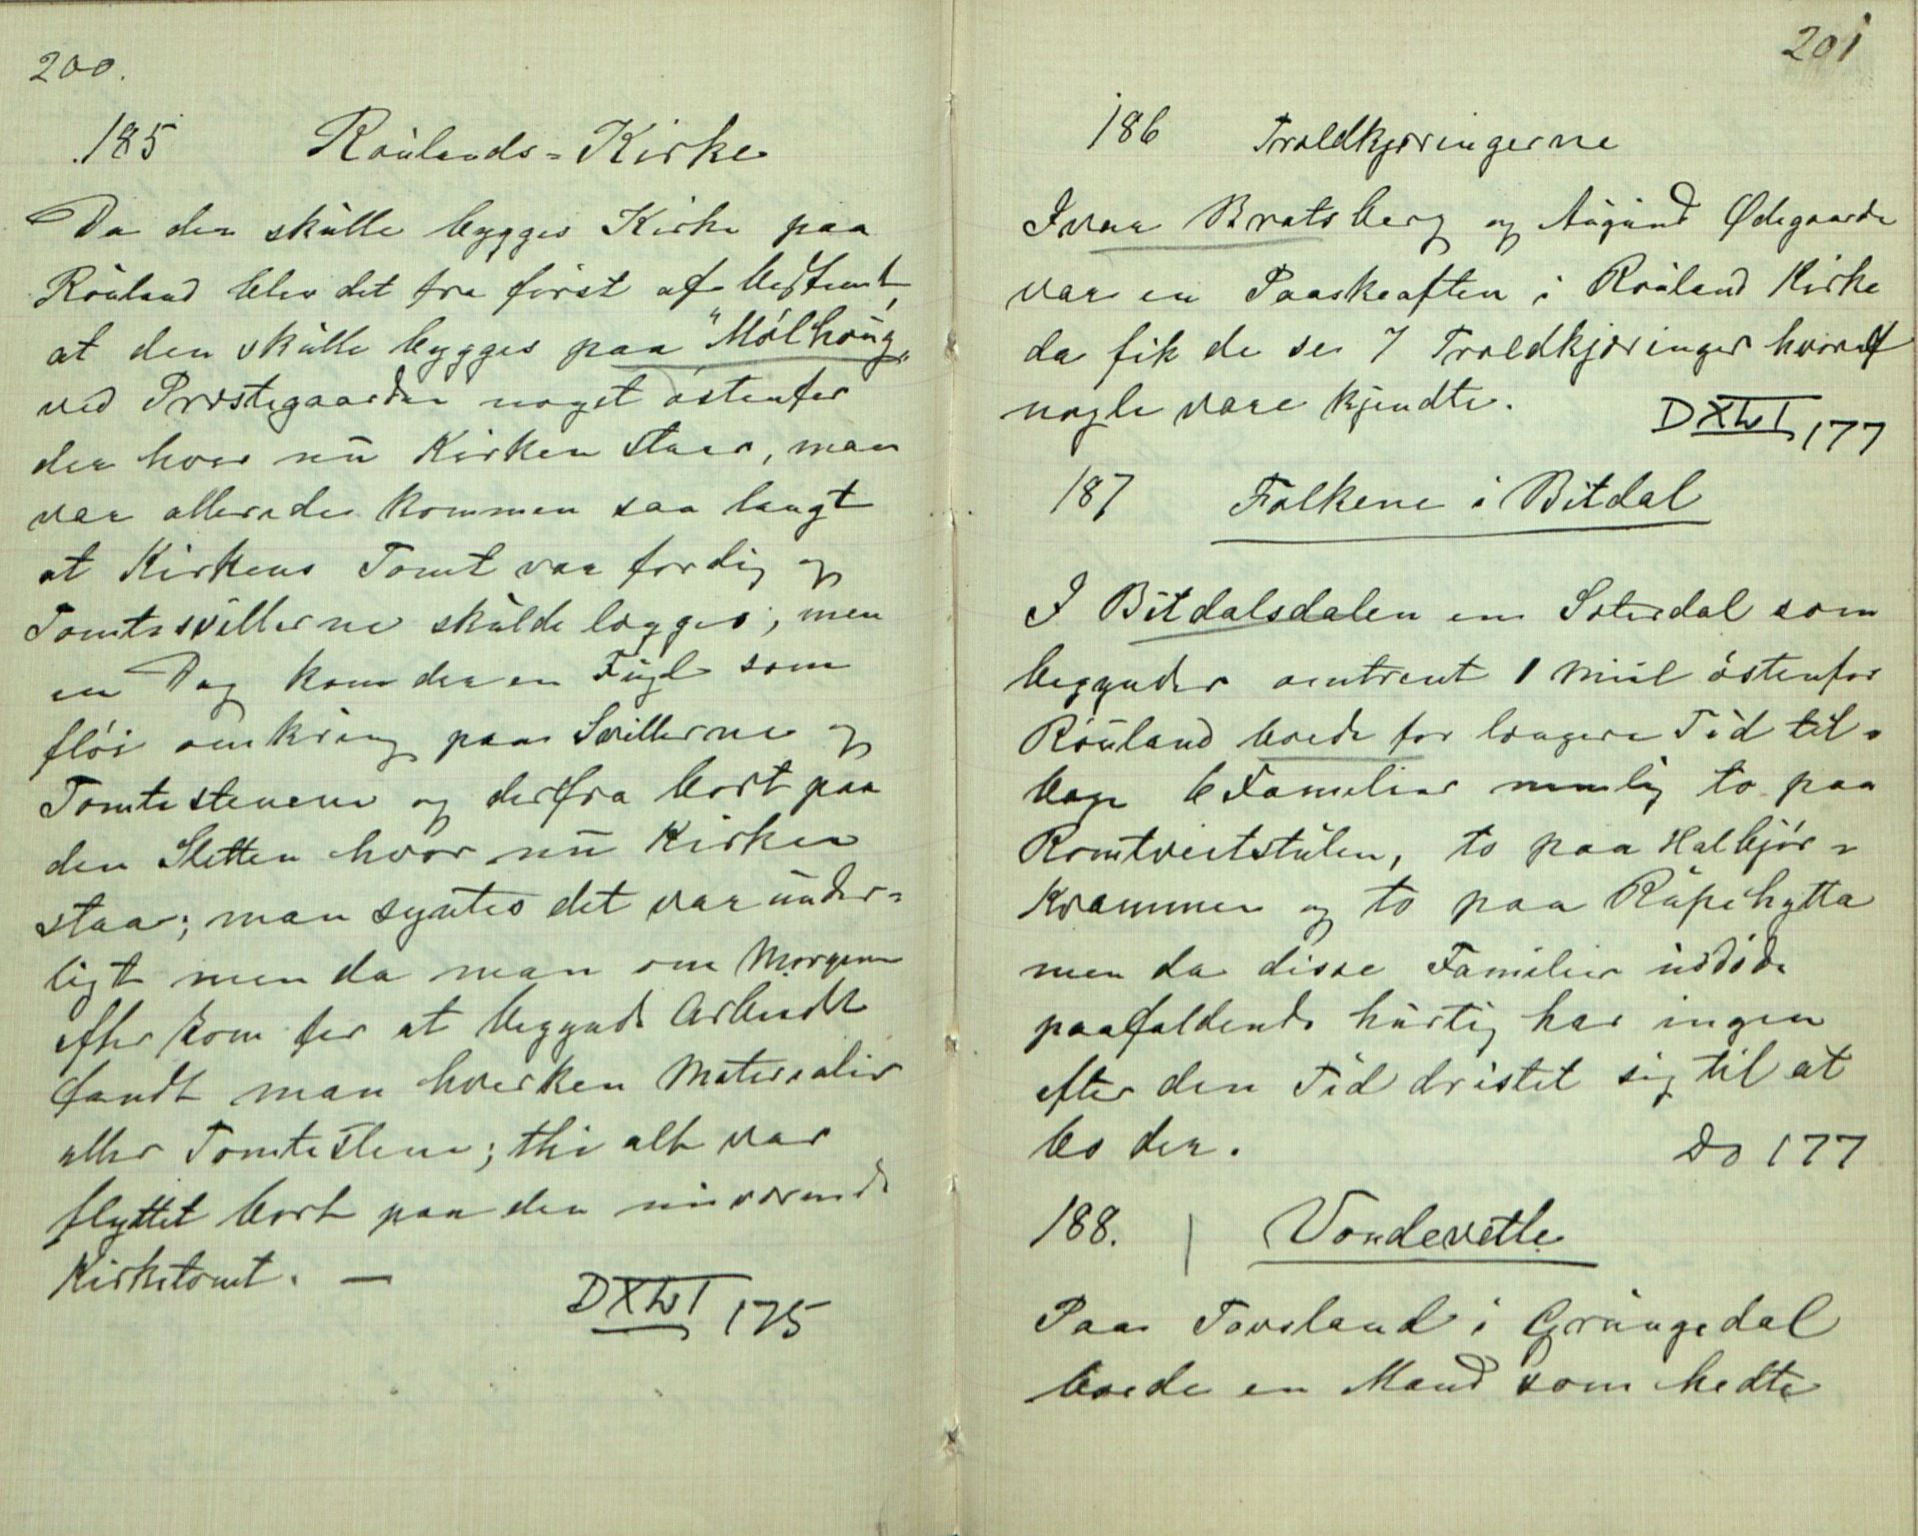 200.
185 Röulands=Kirke
Da der skulle bygges Kirke paa
Röuland blev det fra först af bestemt,
at den skulle bygges paa "Mólhoug"
ved Præstegaarden noget östenfor
der hvor nu Kirken staar, man
var allerede kommen saa langt
at Kirkens Tomt var færdig og
Tomtesvillerne skulde lægges; men
en Dag kom der en Fugl som
flöi omkring paa Svillerne og
Tomtestenene og derfra bort paa
den Sletten hvor nu Kirken
staar; man syntes det var under=
ligt men da man om Morgenen
efter kom for at begynde Arbeidet
fandt man hverken Materialier
eller Tomtestene; thi alt var
flyttet bort paa den nuværende
Kirketomt. —
DXWI 175
201
186 Troldkjæringerne
Ivar Bratsberg og Augund Ödegaarden
var en Paaskeaften i Röuland Kirke
da fik de se 7 Troldkjæringer hvoraf
nogle vare kjendte.
DXWI 177
187 Folkene i Bitdal
I Bitdalsdalen en Sæterdal som
begynder omtrent 1 Miil östenfor
Röuland boede for længere Tid til=
bage 6 Familier nemlig to paa
Romtveitstulen, to paa Halbjör=
Krammen og to paa Rüpehytta
men da disse Familier uddöde
paafaldende hurtig har ingen
efter den Tid dristet sig til at
bo der.
Do 177
188. Vondevetle
Paa Tovsland i Grungedal
boede en Mand som hedte